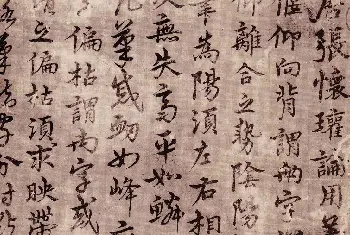 張懷瓘論用
偃仰向背謂兩字
仰離合之勢陰陽
筆為陽須左右相
無失高平如鱗
筆蹙衄如峰
偏枯謂兩字或
之偏枯須求映帶